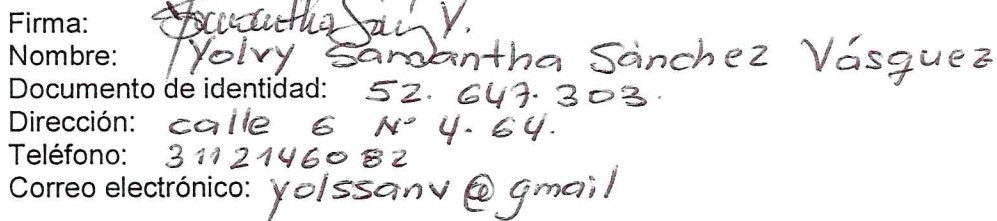 Firma: Samantha Sán V.
Nombre: Yolvy Samantha Sánchez Vásquez
Documento de identidad: 52. 647. 303.
Dirección: calle 6 N° 4-64.
Teléfono: 3112146082
Correo electrónico: yolssanv@gmail